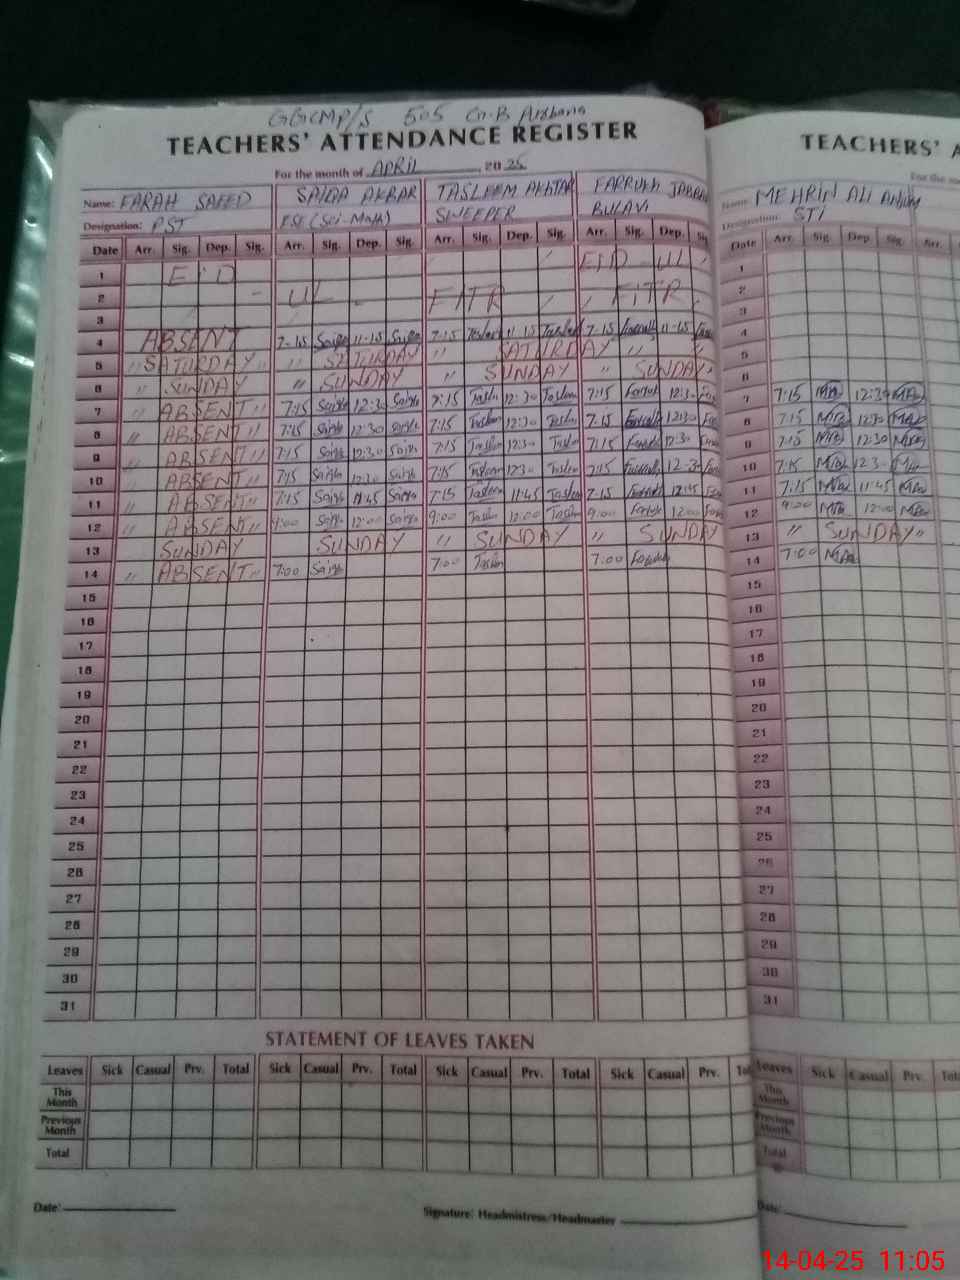 GGCMP/S 505 G.B
TEACHERS' ATTENDANCE REGISTER
For the month of APRIL, 2025
Name: FARAH SAEED SAIDA AKBAR TASLEEM AKHTAR FARRUKH
Designation: PST ESE (Sci-Math) SWEEPER
Date Arr. Sig. Dep. Sig. Arr. Sig. Dep. Sig. Arr. Sig. Dep. Sig. Arr. Sig. Dep. Sig
1 EID EID UL
2 UL - FITR FITR
3
4 ABSENT 7-15 Saida 11-15 Saida 7:15 Taslem 11-15 Taslem 7-15 11-15
5 " SATURDAY " " SATURDAY " SATURDAY " "
6 " SUNDAY " SUNDAY " SUNDAY " SUNDAY "
7 " ABSENT " 7:15 Saida 12:30 Saida 7:15 Taslem 12:30 Taslem 7:15 12:30
8 " ABSENT " 7:15 Saida 12:30 Saida 7:15 Taslem 12:30 Taslem 7:15 12:30
9 " ABSENT " 7:15 Saida 12:30 Saida 7:15 Taslem 12:30 Taslem 7:15 12:30
10 " ABSENT " 7:15 Saida 12:30 Saida 7:15 Taslem 12:30 Taslem 7:15 12-30
11 " ABSENT " 7:15 Saida 11:45 Saida 7:15 Taslem 11:45 Taslem 7-15
12 " ABSENT " 9:00 Saida 12:00 Saida 9:00 Taslem 12:00 Taslem 9:00 12:00
13 SUNDAY SUNDAY " SUNDAY " SUNDAY
14 " ABSENT " 7:00 Saida 7:00 Taslem 7:00
15
16
17
18
19
20
21
22
23
24
25
26
27
28
29
30
31
STATEMENT OF LEAVES TAKEN
Leaves Sick Casual Prv. Total Sick Casual Prv. Total Sick Casual Prv. Total Sick Casual Prv.
This
Month
Previous
Month
Total
Date:
Signature: Headmistress/Headmaster
TEACHERS'
For the
Name: MEHRIN ALI ANJUM
Designation: STI
Date Arr. Sig. Dep. Sig. Arr.
1
2
3
4
5
6
7 7:15 12:30
8 7:15 12:30
9 7:15 12:30
10 7:15 12:30
11 7:15 11:45
12 9:00 12:00
13 " SUNDAY "
14 7:00
15
16
17
18
19
20
21
22
23
24
25
26
27
28
29
30
31
Leaves Sick Casual Prv.
This
Month
Previous
Month
Total
Date:
14-04-25 11:05